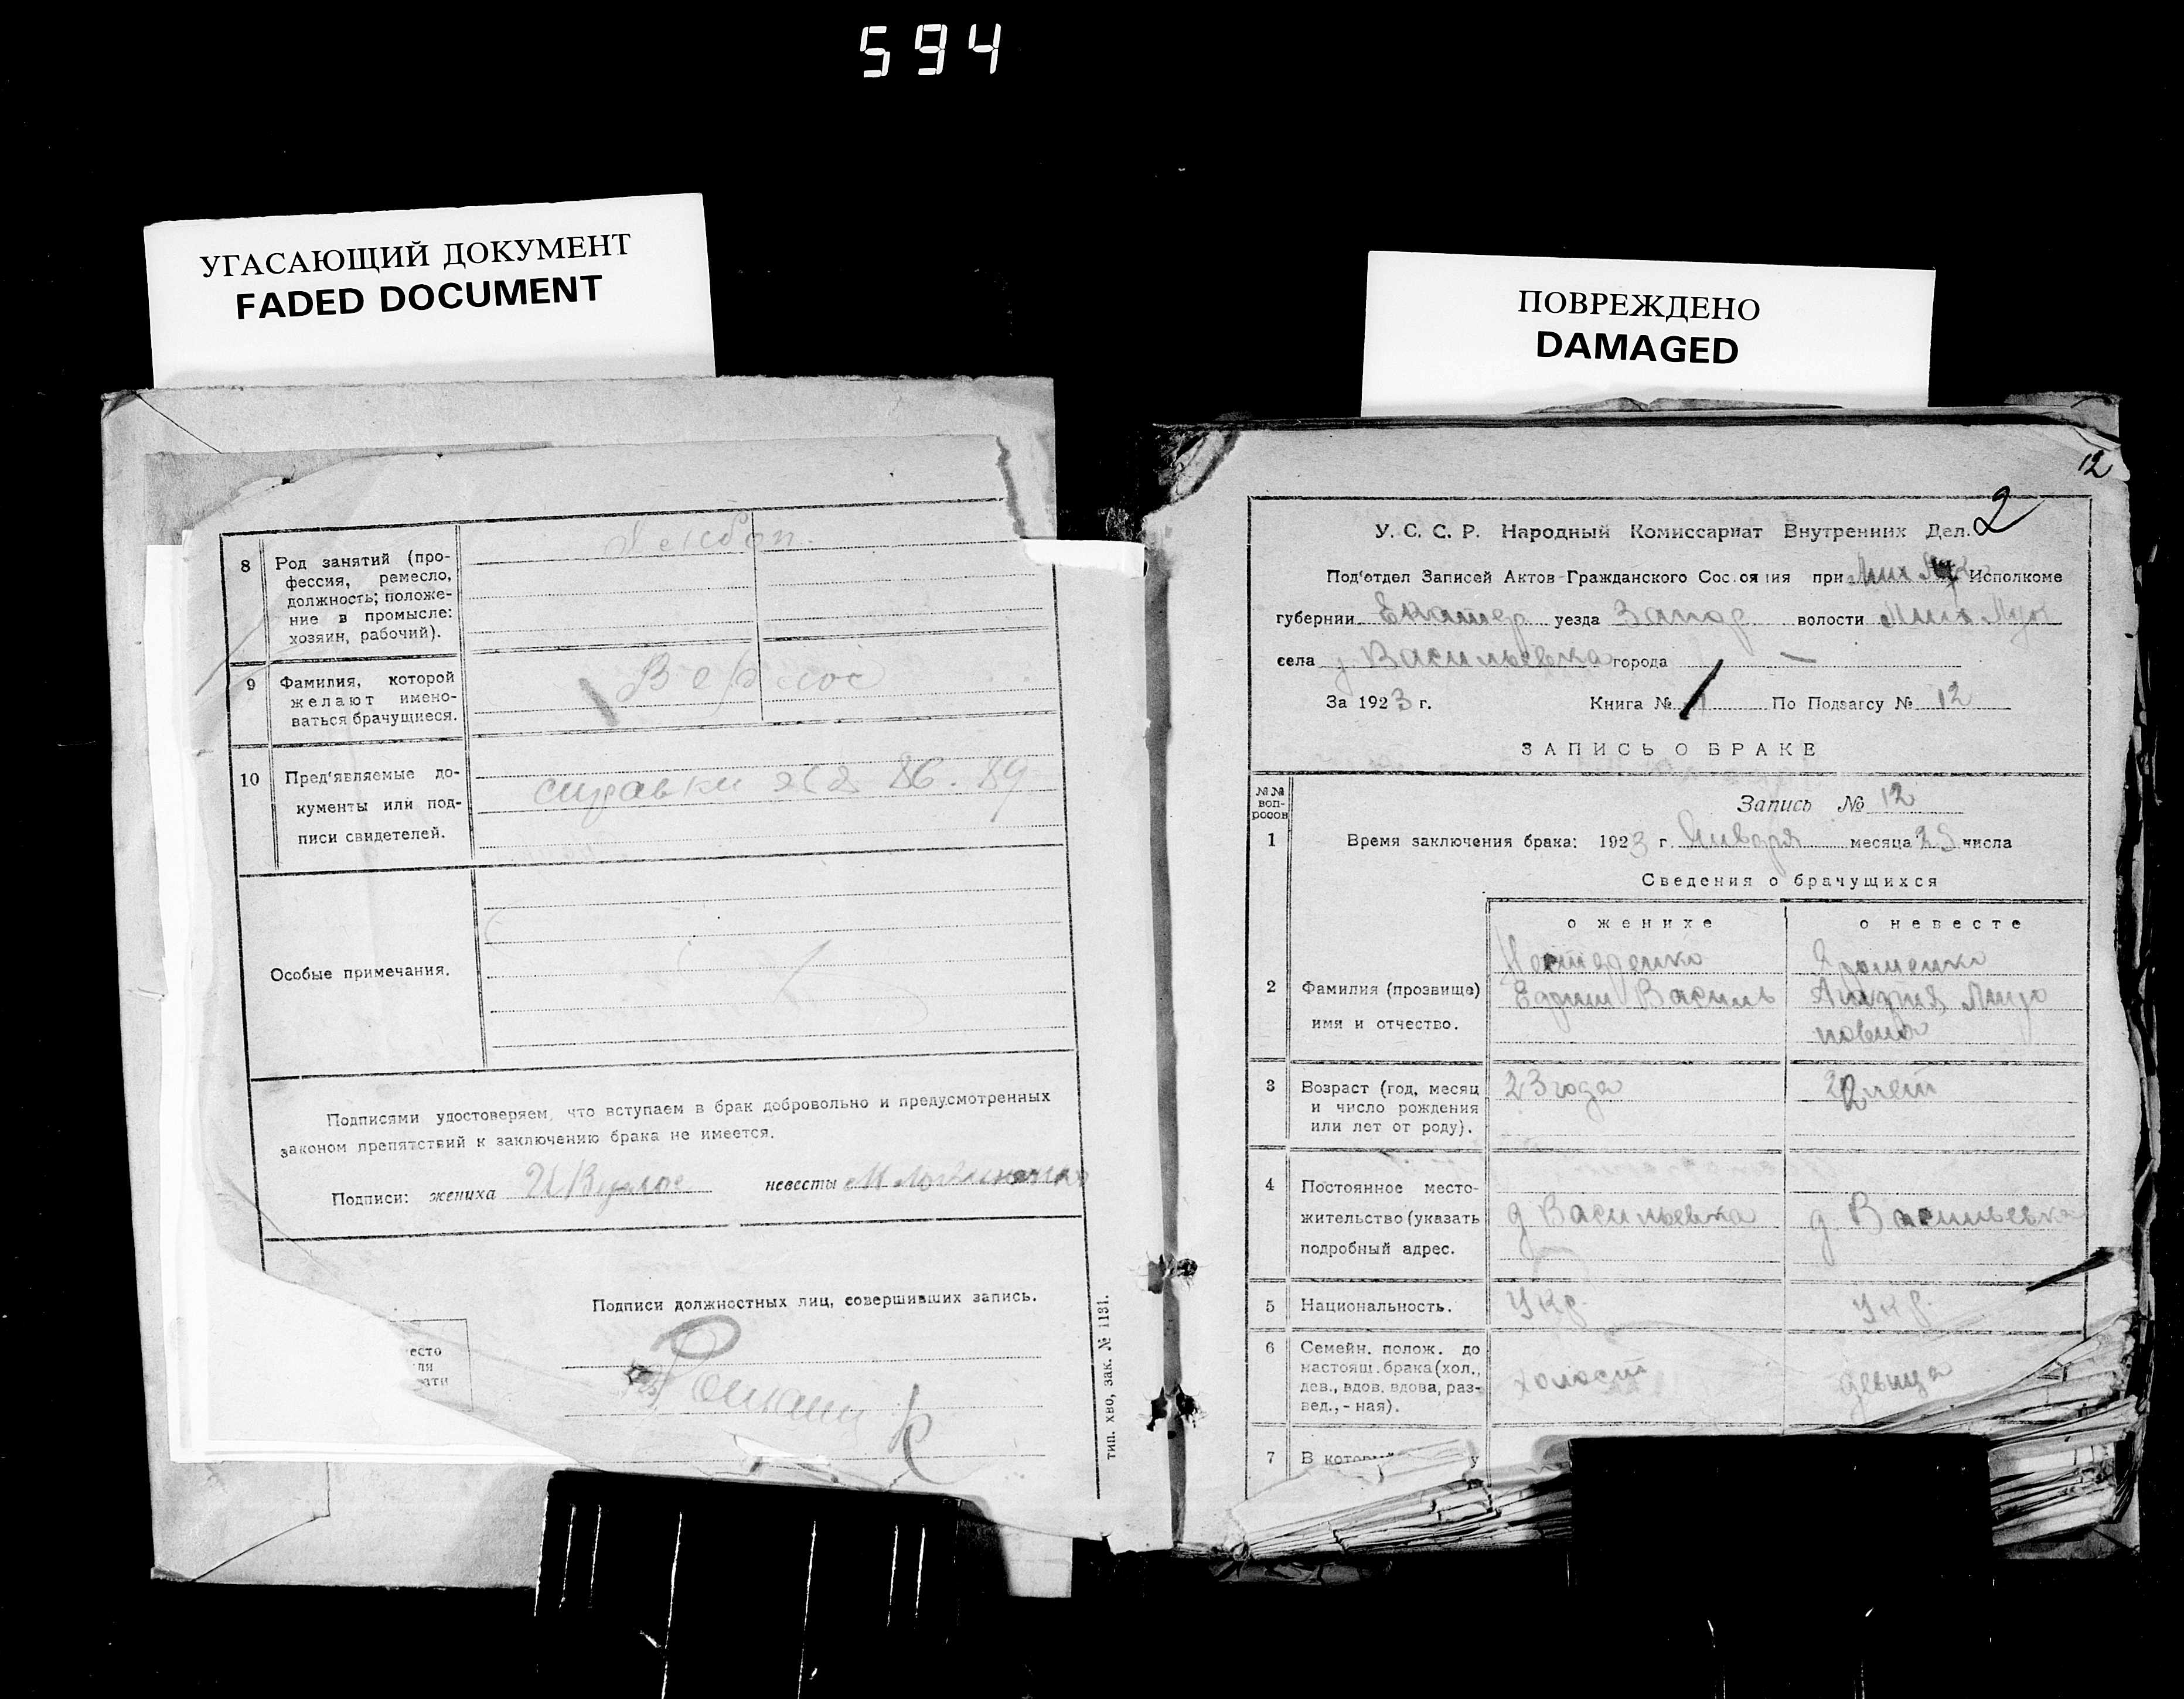 594
УГАСАЮЩИЙ ДОКУМЕНТ
FADED DOCUMENT
ПОВРЕЖДЕНО
DAMAGED
8 Род занятий (про-
фессия, ремесло,
должность; положе-
ние в промысле:
хозяин, рабочий).
9 Фамилия, которой
желают имено-
ваться брачущиеся.
10 Пред'являемые до-
кументы или под-
писи свидетелей.
справки 86. 89
Особые примечания.
Подписями удостоверяем, что вступаем в брак добровольно и предусмотренных
законом препятствий к заключению брака не имеется.
Подписи: жениха невесты
Подписи должностных лиц, совершивших запись.
есто
ля
ати
тип. хво, зак. № 1131.
12
2
У. С. С. Р. Народный Комиссариат Внутренних Дел.
Под'отдел Записей Актов Гражданского Состояния при Исполкоме
губернии Екатер уезда Запор волости Мих
села д. Васильевка города —
За 1923 г. Книга № 1 По Подзагсу № 12
ЗАПИСЬ О БРАКЕ
№№
воп-
росов
Запись № 12
1 Время заключения брака: 1923 г. Января месяца 25 числа
Сведения о брачущихся
о женихе о невесте
Ярошенко
2 Фамилия (прозвище)
имя и отчество.
3 Возраст (год, месяц
и число рождения
или лет от роду).
23 года 22 лет
4 Постоянное место-
жительство (указать
подробный адрес.
д Васильевка д. Васильевка
5 Национальность. Укр. Укр.
6 Семейн. полож. до
настоящ. брака (хол.,
дев., вдов. вдова, раз-
вед., - ная).
холост девица
7 В